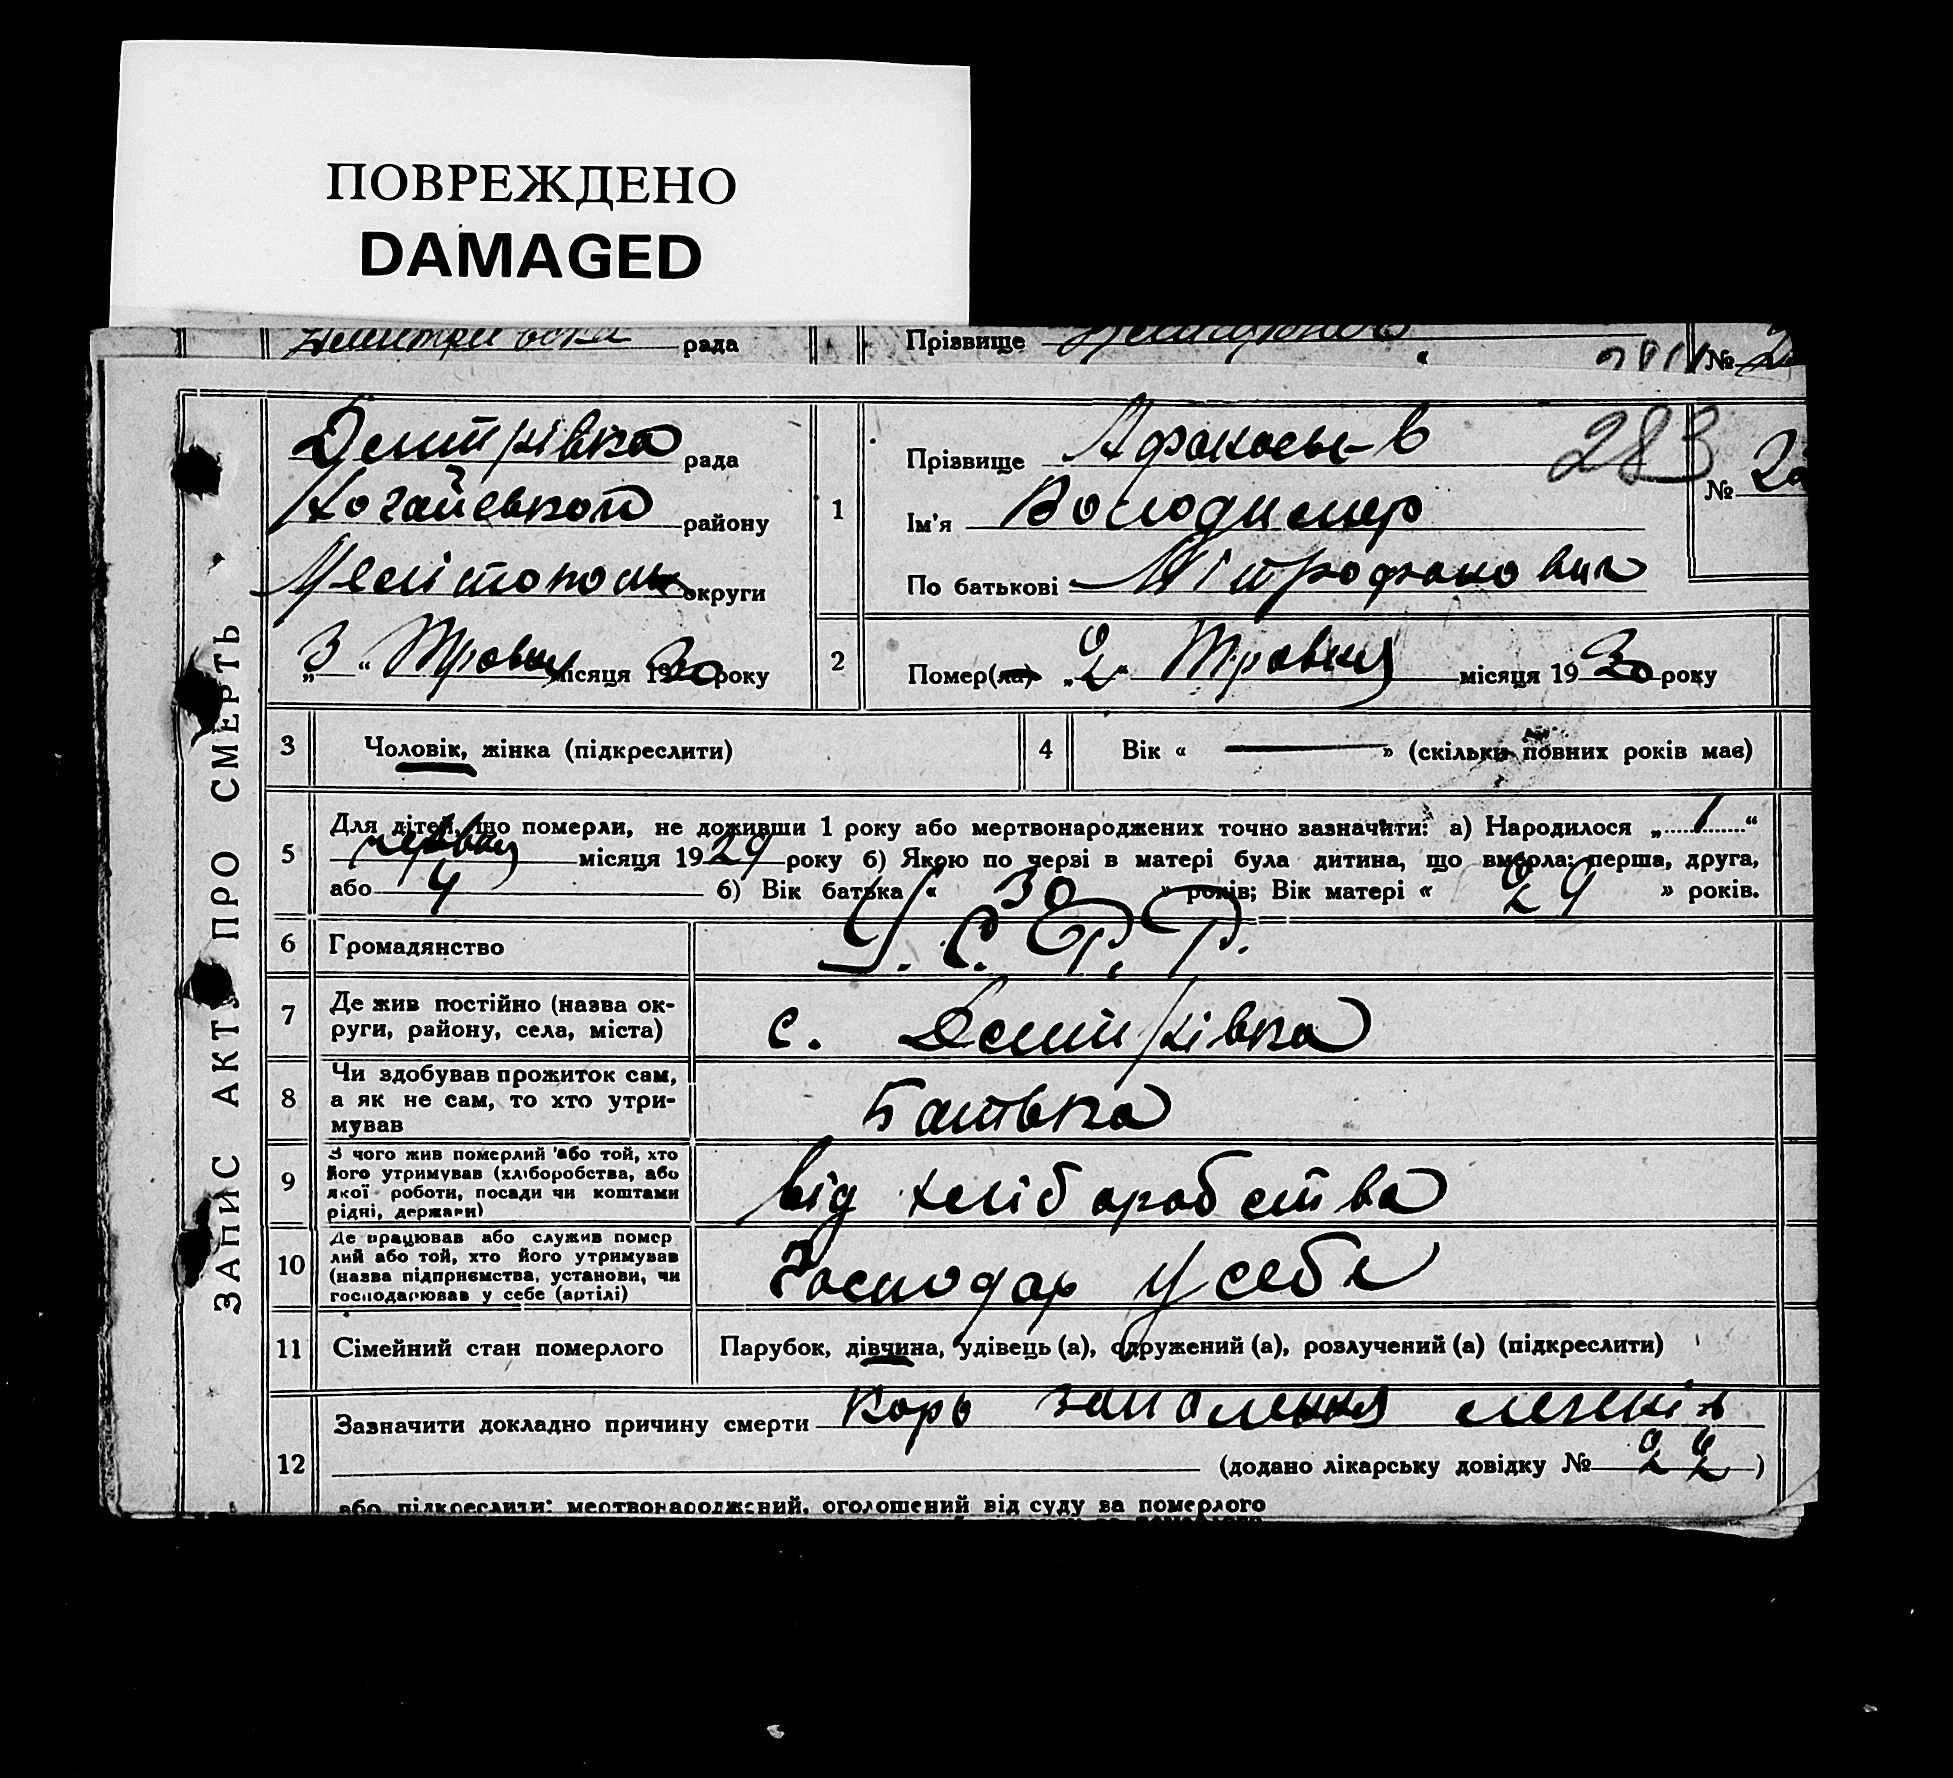 ПОВРЕЖДЕНО
DAMAGED
рада
Прізвище
№
Дмитрівка рада
Ногайського району
Мелітополь округи
„3“ Травня місяця 1930 року
ЗАПИС АКТУ ПРО СМЕРТЬ
1
Прізвище Афанасьев
283
№ 22
Ім'я Володимер
По батькові Мітрофанович
2
Помер(ла) „2“ Травня місяця 1930 року
3 Чоловік, жінка (підкреслити)
4 Вік « — » (скільки повних років має)
5 Для дітей, що померли, не доживши 1 року або мертвонароджених точно зазначити: а) Народилося „1“
червня місяця 1929 року б) Якою по черзі в матері була дитина, що вмерла: перша, друга,
або 4 б) Вік батька « 30 » років; Вік матері « 29 » років.
6 Громадянство У.С.Р.Р.
7 Де жив постійно (назва ок-
руги, району, села, міста)
с. Дмитрівка
8 Чи здобував прожиток сам,
а як не сам, то хто утри-
мував
Батько
9 З чого жив померлий або той, хто
його утримував (хліборобства, або
якої роботи, посади чи коштами
рідні, держави)
від хліборобства
10 Де працював або служив помер
лий або той, хто його утримував
(назва підприємства, установи, чи
господарював у себе (артілі)
Господар у себе
11 Сімейний стан померлого Парубок, дівчина, удівець (а), одружений (а), розлучений (а) (підкреслити)
12 Зазначити докладно причину смерти Корь запалення легенів
(додано лікарську довідку № 22)
або підкреслити: мертвонароджений, оголошений від суду за померлого